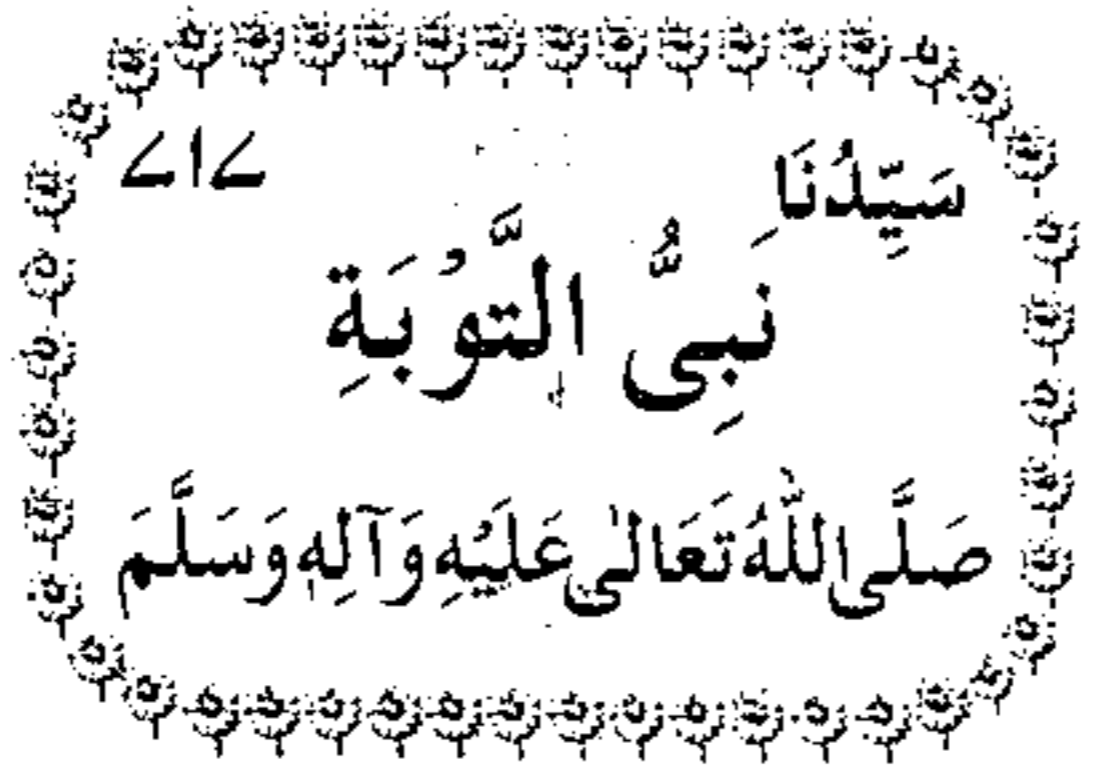 سَيِّدُنَا ے۱ے
نَبِیُّ التَّوْبَةِ
صَلَّى اللّٰهُ تَعَالٰى عَلَيْهِ وَآلِهٖ وَسَلَّمَ